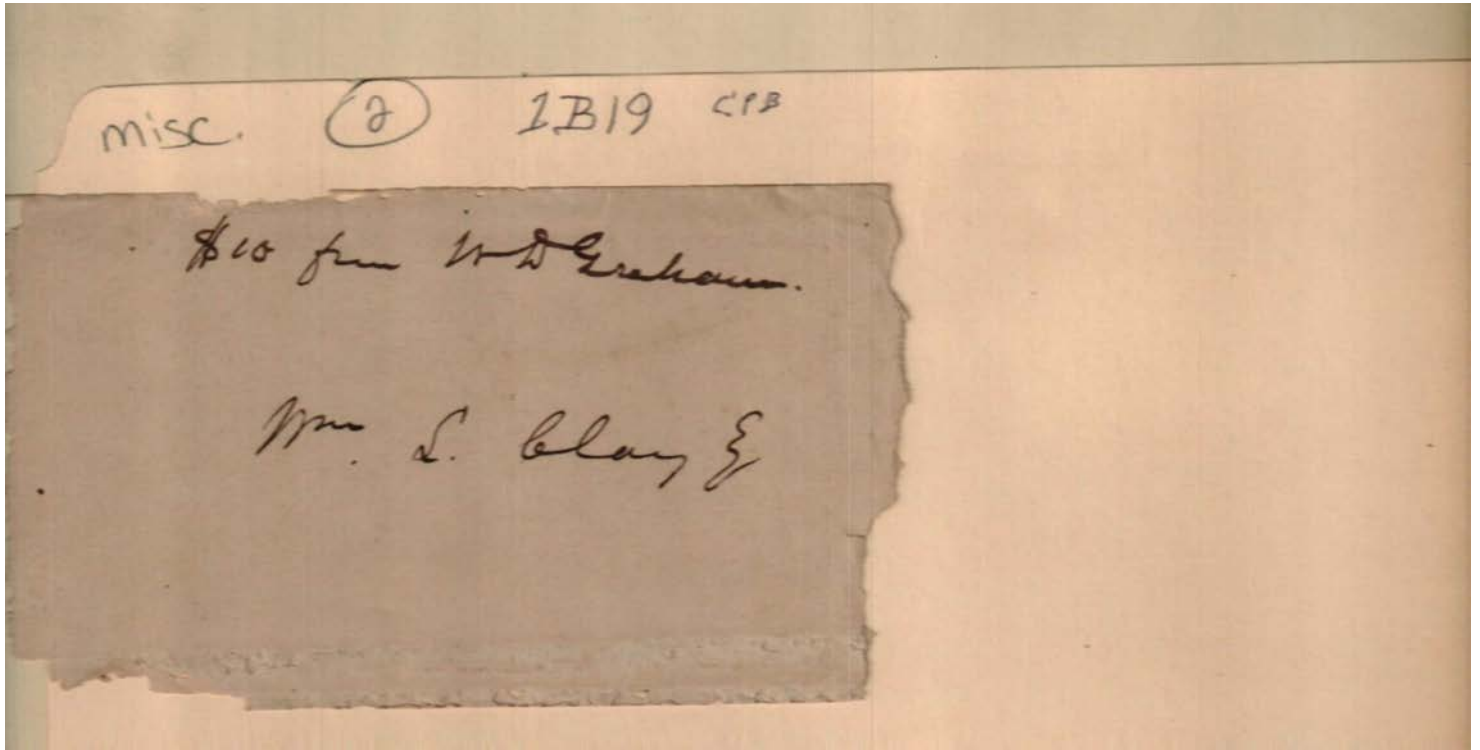 misc. 2 1B19 CPB
$10 from W D Graham.
Wm. L. Clay Eq